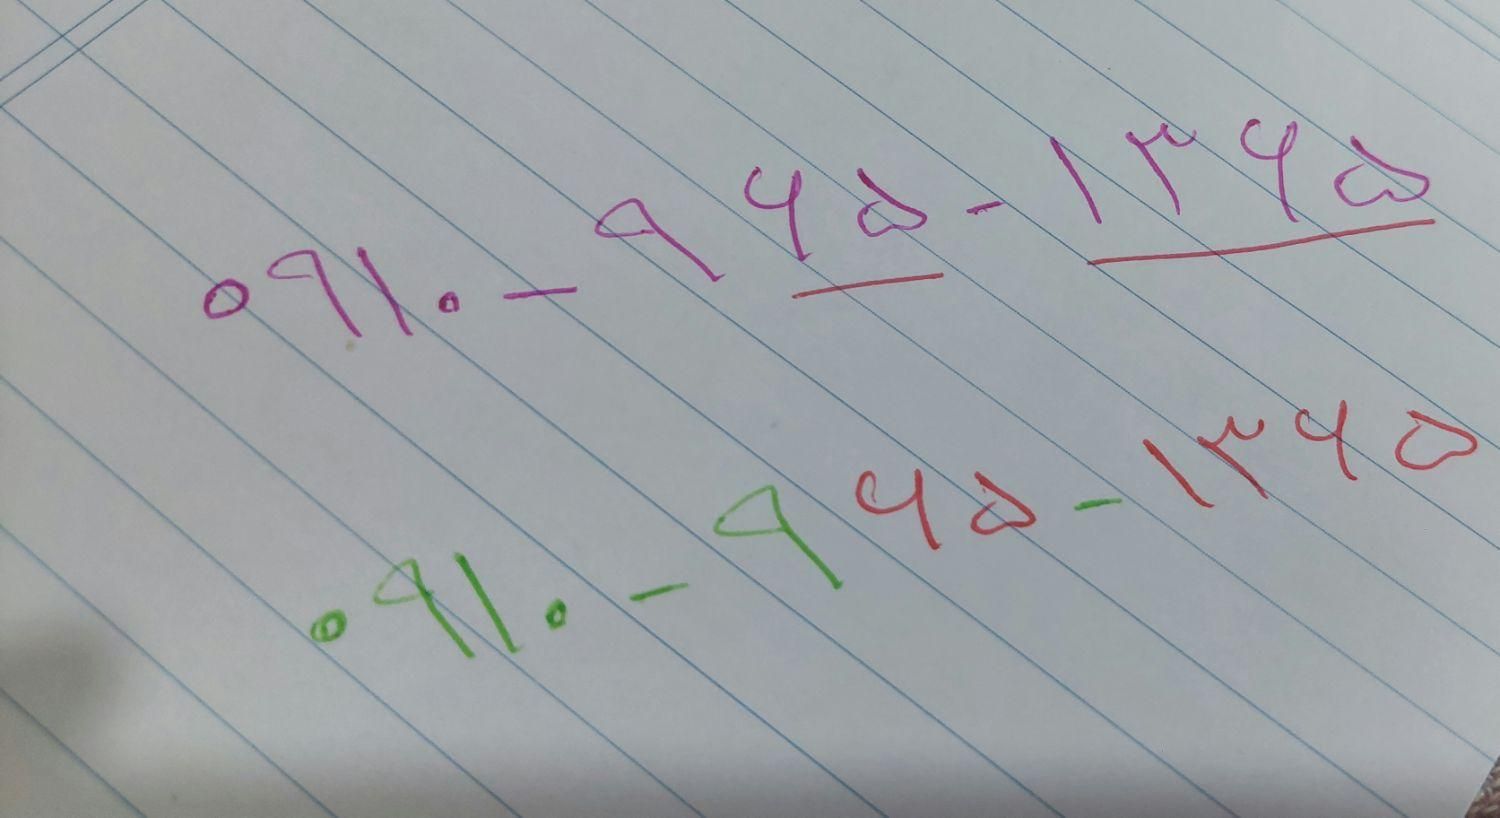 ۰۹۱۰ - ۹۶۵ - ۱۳۶۵
۰۹۱۰ - ۹۶۵ - ۱۳۶۵